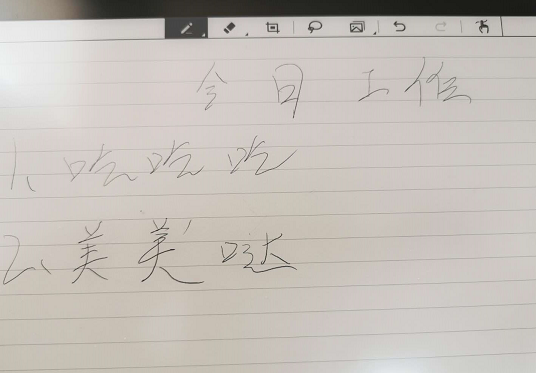 今日工作
1、吃吃吃
2、美美哒